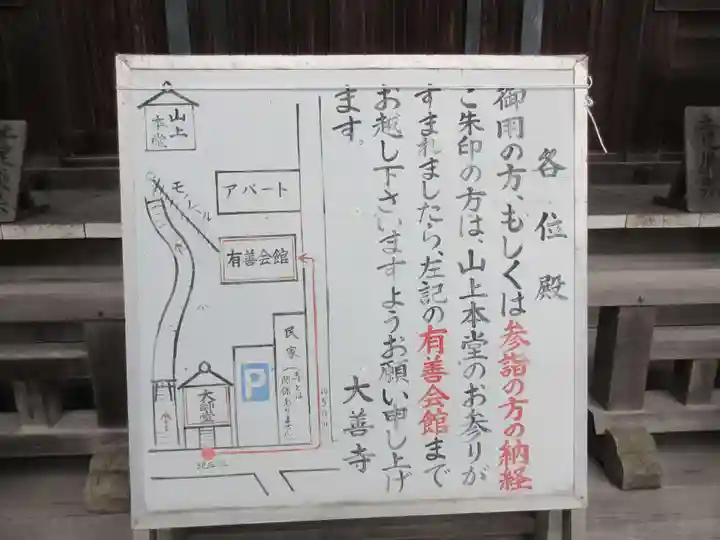 各位殿
御用の方、もしくは参詣の方の納経
ご朱印の方は、山上本堂のお参りが
すまれましたら、左記の有善会館まで
お越し下さいますようお願い申し上げ
ます。
大善寺
山上
本堂
モノレール
アパート
有善会館
民家
P
大師堂
現在地